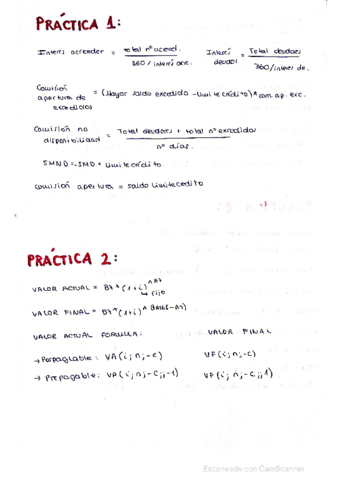 PRÁCTICA 1:
Interes acreedor = total nº acreed. / 360/interés acre.
Interés deudor = Total deudores / 360/interes de.
Comisión apertura de excedidos = (Mayor saldo excedido - Limite crédito) * com. ap. exc.
Comisión no disponibilidad = Total deudores + total nº excedidos / nº días.
SMND = SMD + Limite crédito.
Comisión apertura = saldo limite credito
PRÁCTICA 2:
VALOR ACTUAL = B7*(1+i)^A7
↳ fijo
VALOR FINAL = B7*(1+i)^(BASE-A7)
VALOR ACTUAL FORMULA: VALOR FINAL
→ Pospagable: VA(i; n;-c) VF(i; n;-c)
→ Prepagable: VA(i; n;-c;;-1) VF(i; n;-c;;1)
Escaneado con CamScanner